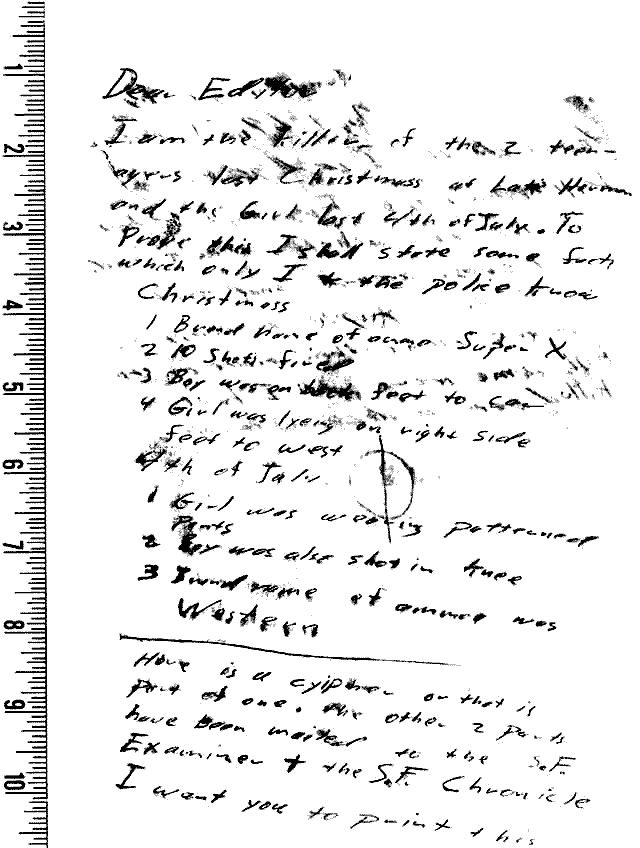 1
2
3
4
5
6
7
8
9
10
Dear Editor
I am the killer of the 2 teen-
agers last Christmass at Lake Herman
and the Girl last 4th of July. To
Prove this I shall state some facts
which only I + the police know
Christmass
1 Brand name of ammo Super X
2 10 Shots fired
3 Boy was on back feet to car
4 Girl was lyeing on right side
feet to west
4th of July
1 Girl was wearing patterned
pants
2 Boy was also shot in knee
3 Brand name of ammo was
Western
Here is a cyipher or that is
part of one. the other 2 parts
have been mailed to the S.F.
Examiner + the S.F. Chronicle
I want you to print this